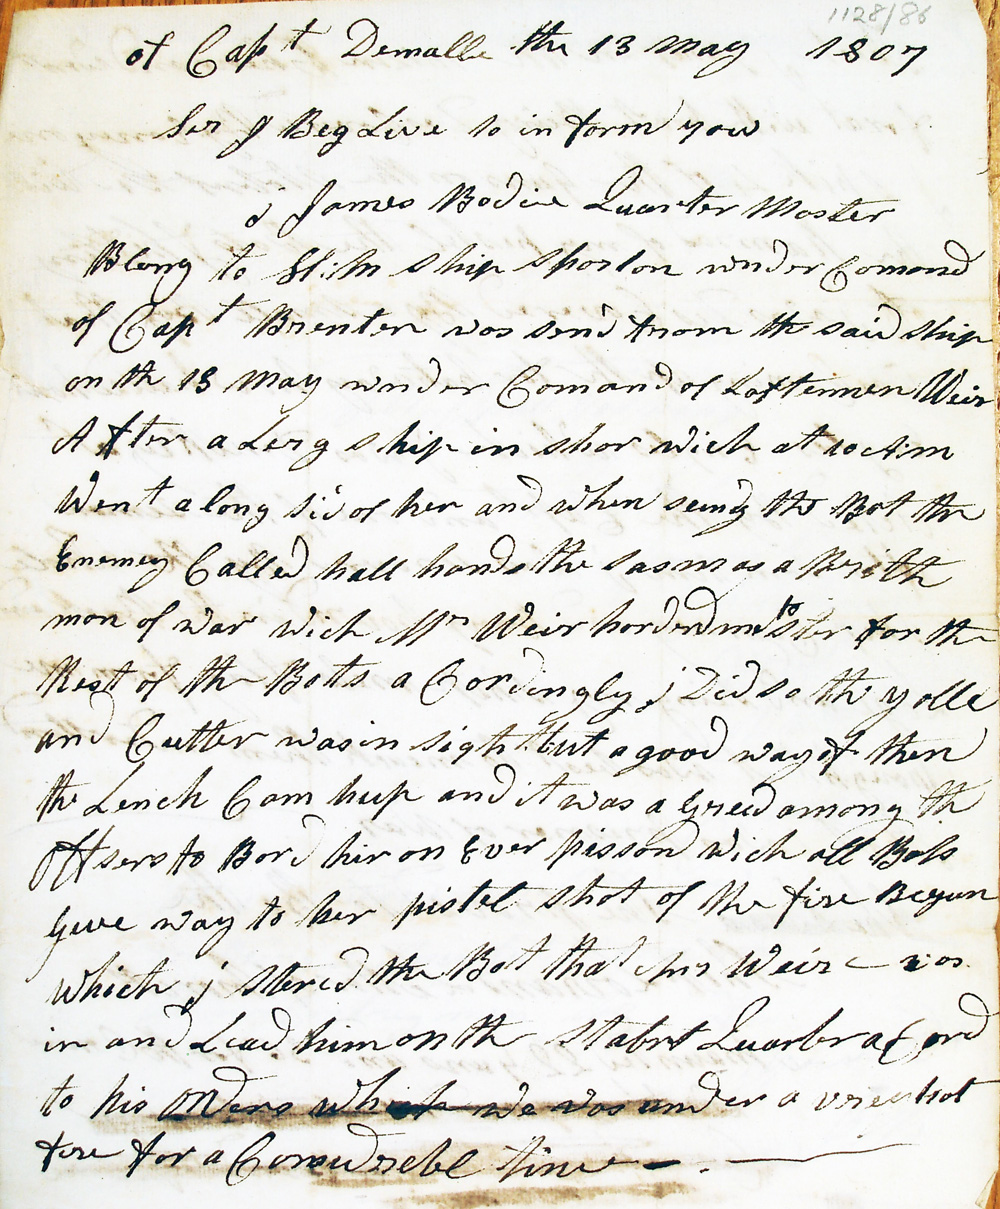 1128/86
of Capt Demalle the 13 May 1807
Ser J Beg Live to in form you
j James Bodie Quarter Master
Blong to H:M ship Sparton under Comand
of Capt Brenten was send from the said ship
on th 13 May under Comand of Laftennen Weir
After a Lerg ship in shor wich at 10 A:m
Went a long sid of her and when seing the Bot the
Enemey Called hall hands the sam as a Brith
man of war wich Mr Weir horderd me to ster for the
Rest of the Botts a Cordingly j Did so the yolle
and Cutter was in sight but a good way of then
the Lench Cam hup and it was a Greed among th
offsers to Bord hir on Ever pisson wich all Bots
Geve way to her pistel shot of the fire Begun
which j stered the Bot that Mr Weir was
in and Lead him on the stabrt Quarter a Cord
to his orders which we was under a vrey hot
fire for a Consudrebl time